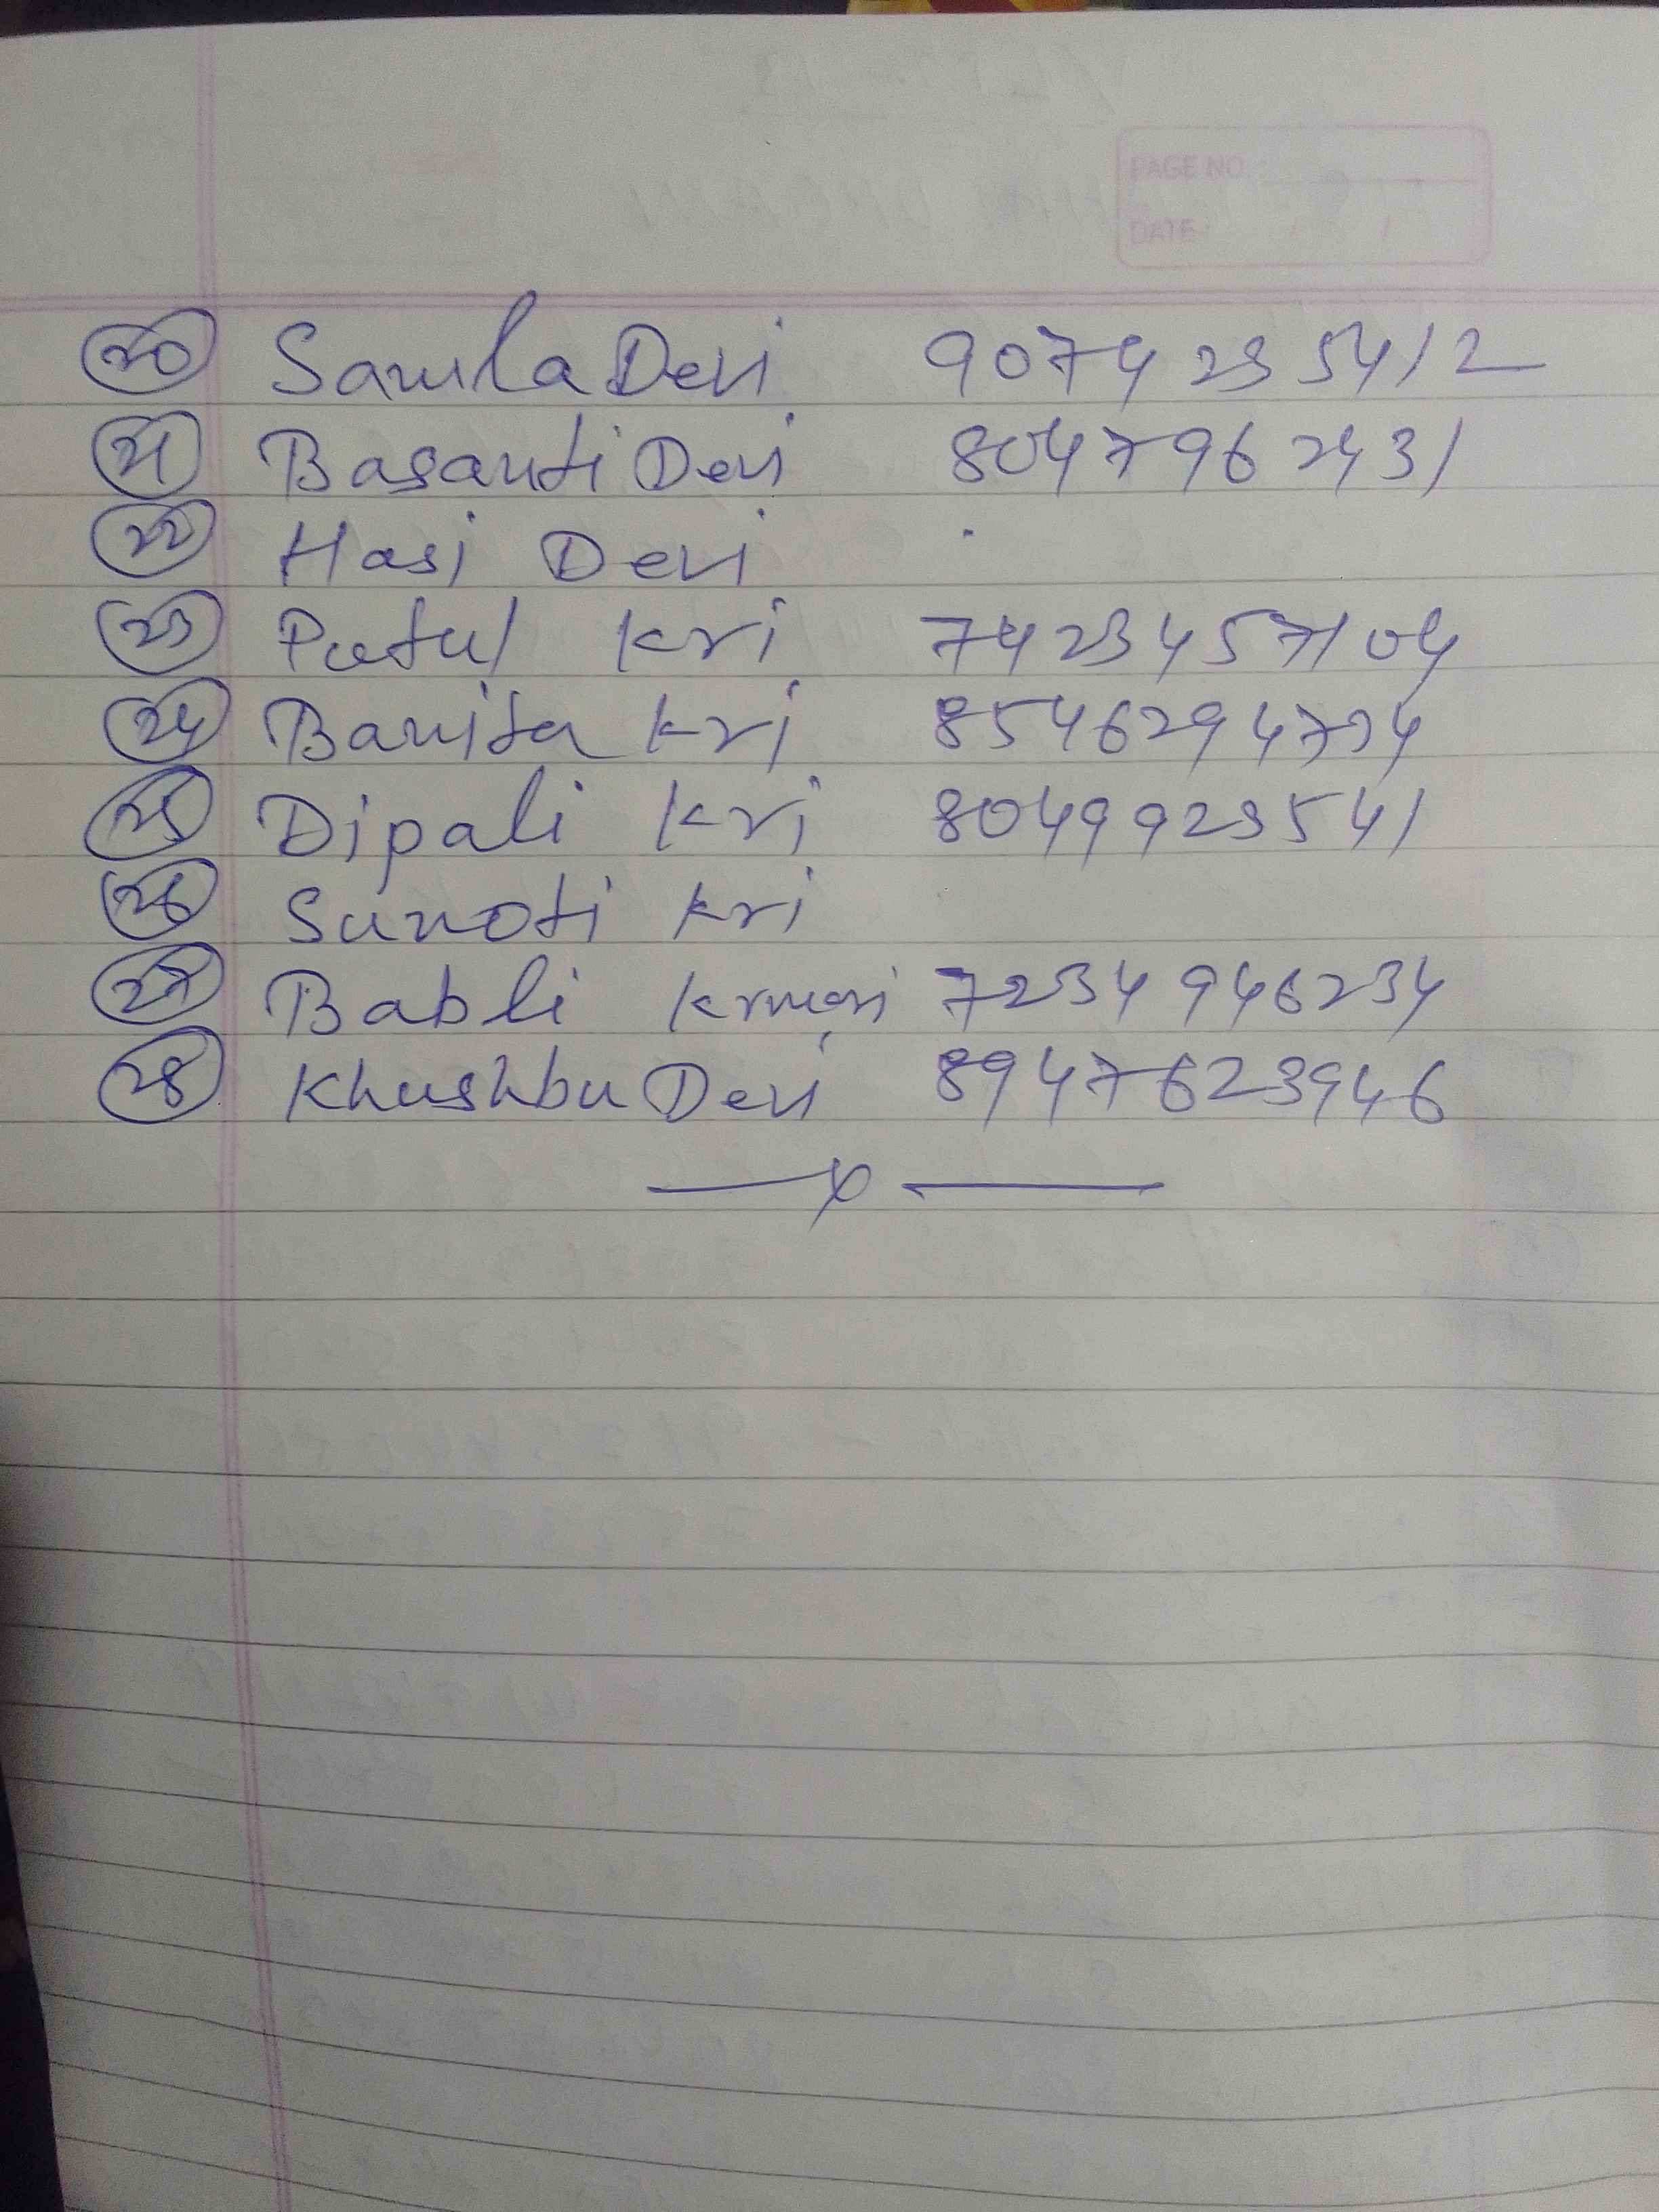 PAGE NO.
DATE / /
20 Samila Devi 9074235412
21 Basanti Devi 8047962431
22 Hasi Devi
23 Putul Kri 7423457104
24 Banita Kri 8546294724
25 Dipali Kri 8049923541
26 Sunoti Kri
27 Babli Krmari 7234946234
28 Khushbu Devi 8947623946
—x—